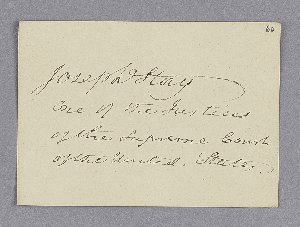 60
Joseph Story
One of the Justices
of the Supreme Court
of the United States